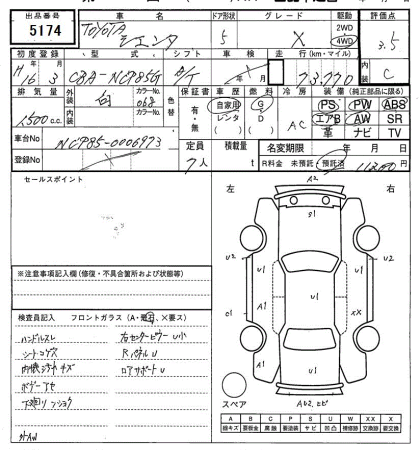 出品番号 車名 ドア形状 グレード 駆動 評価点
5174 TOYOTA シエンタ 5 X 2WD 4WD 3.5
初度登録 型式 シフト 車検 走行(km・マイル) 内装
H16 3 CBA-NCP85G A/T 年 月 73,770 C
排気量 外装 カラーNo. 色替 保証書 車歴 燃料 冷房 装備(純正部品に限る)
1,500cc 白 068 有・無 自家用 レンタ ( ) G D ( ) AC PS PW ABS
内装 カラーNo. エアB AW SR
革 ナビ TV
車台No NCP85-0006973 定員 積載量 名変期限 年 月 日
登録No 7人 t R料金 未預託 預託済
セールスポイント
左 右
A2
S1
U2 U1 U2
A1 U1 U1
C1 XX
U1
スペア
※注意事項記入欄(修復・不具合箇所および状態等)
検査員記入 フロントガラス(A・飛石、×要ス)
ハンドルスレ 右センターピラーU小
シートコゲ穴 RパネルU
内張汚れキズ ロアサポートU
ボデーアセ
外AW
A B C P S U W XX X
線キズ 要鈑金 腐蝕 要塗装 サビ 凹凸 補修跡 交換跡 要交換